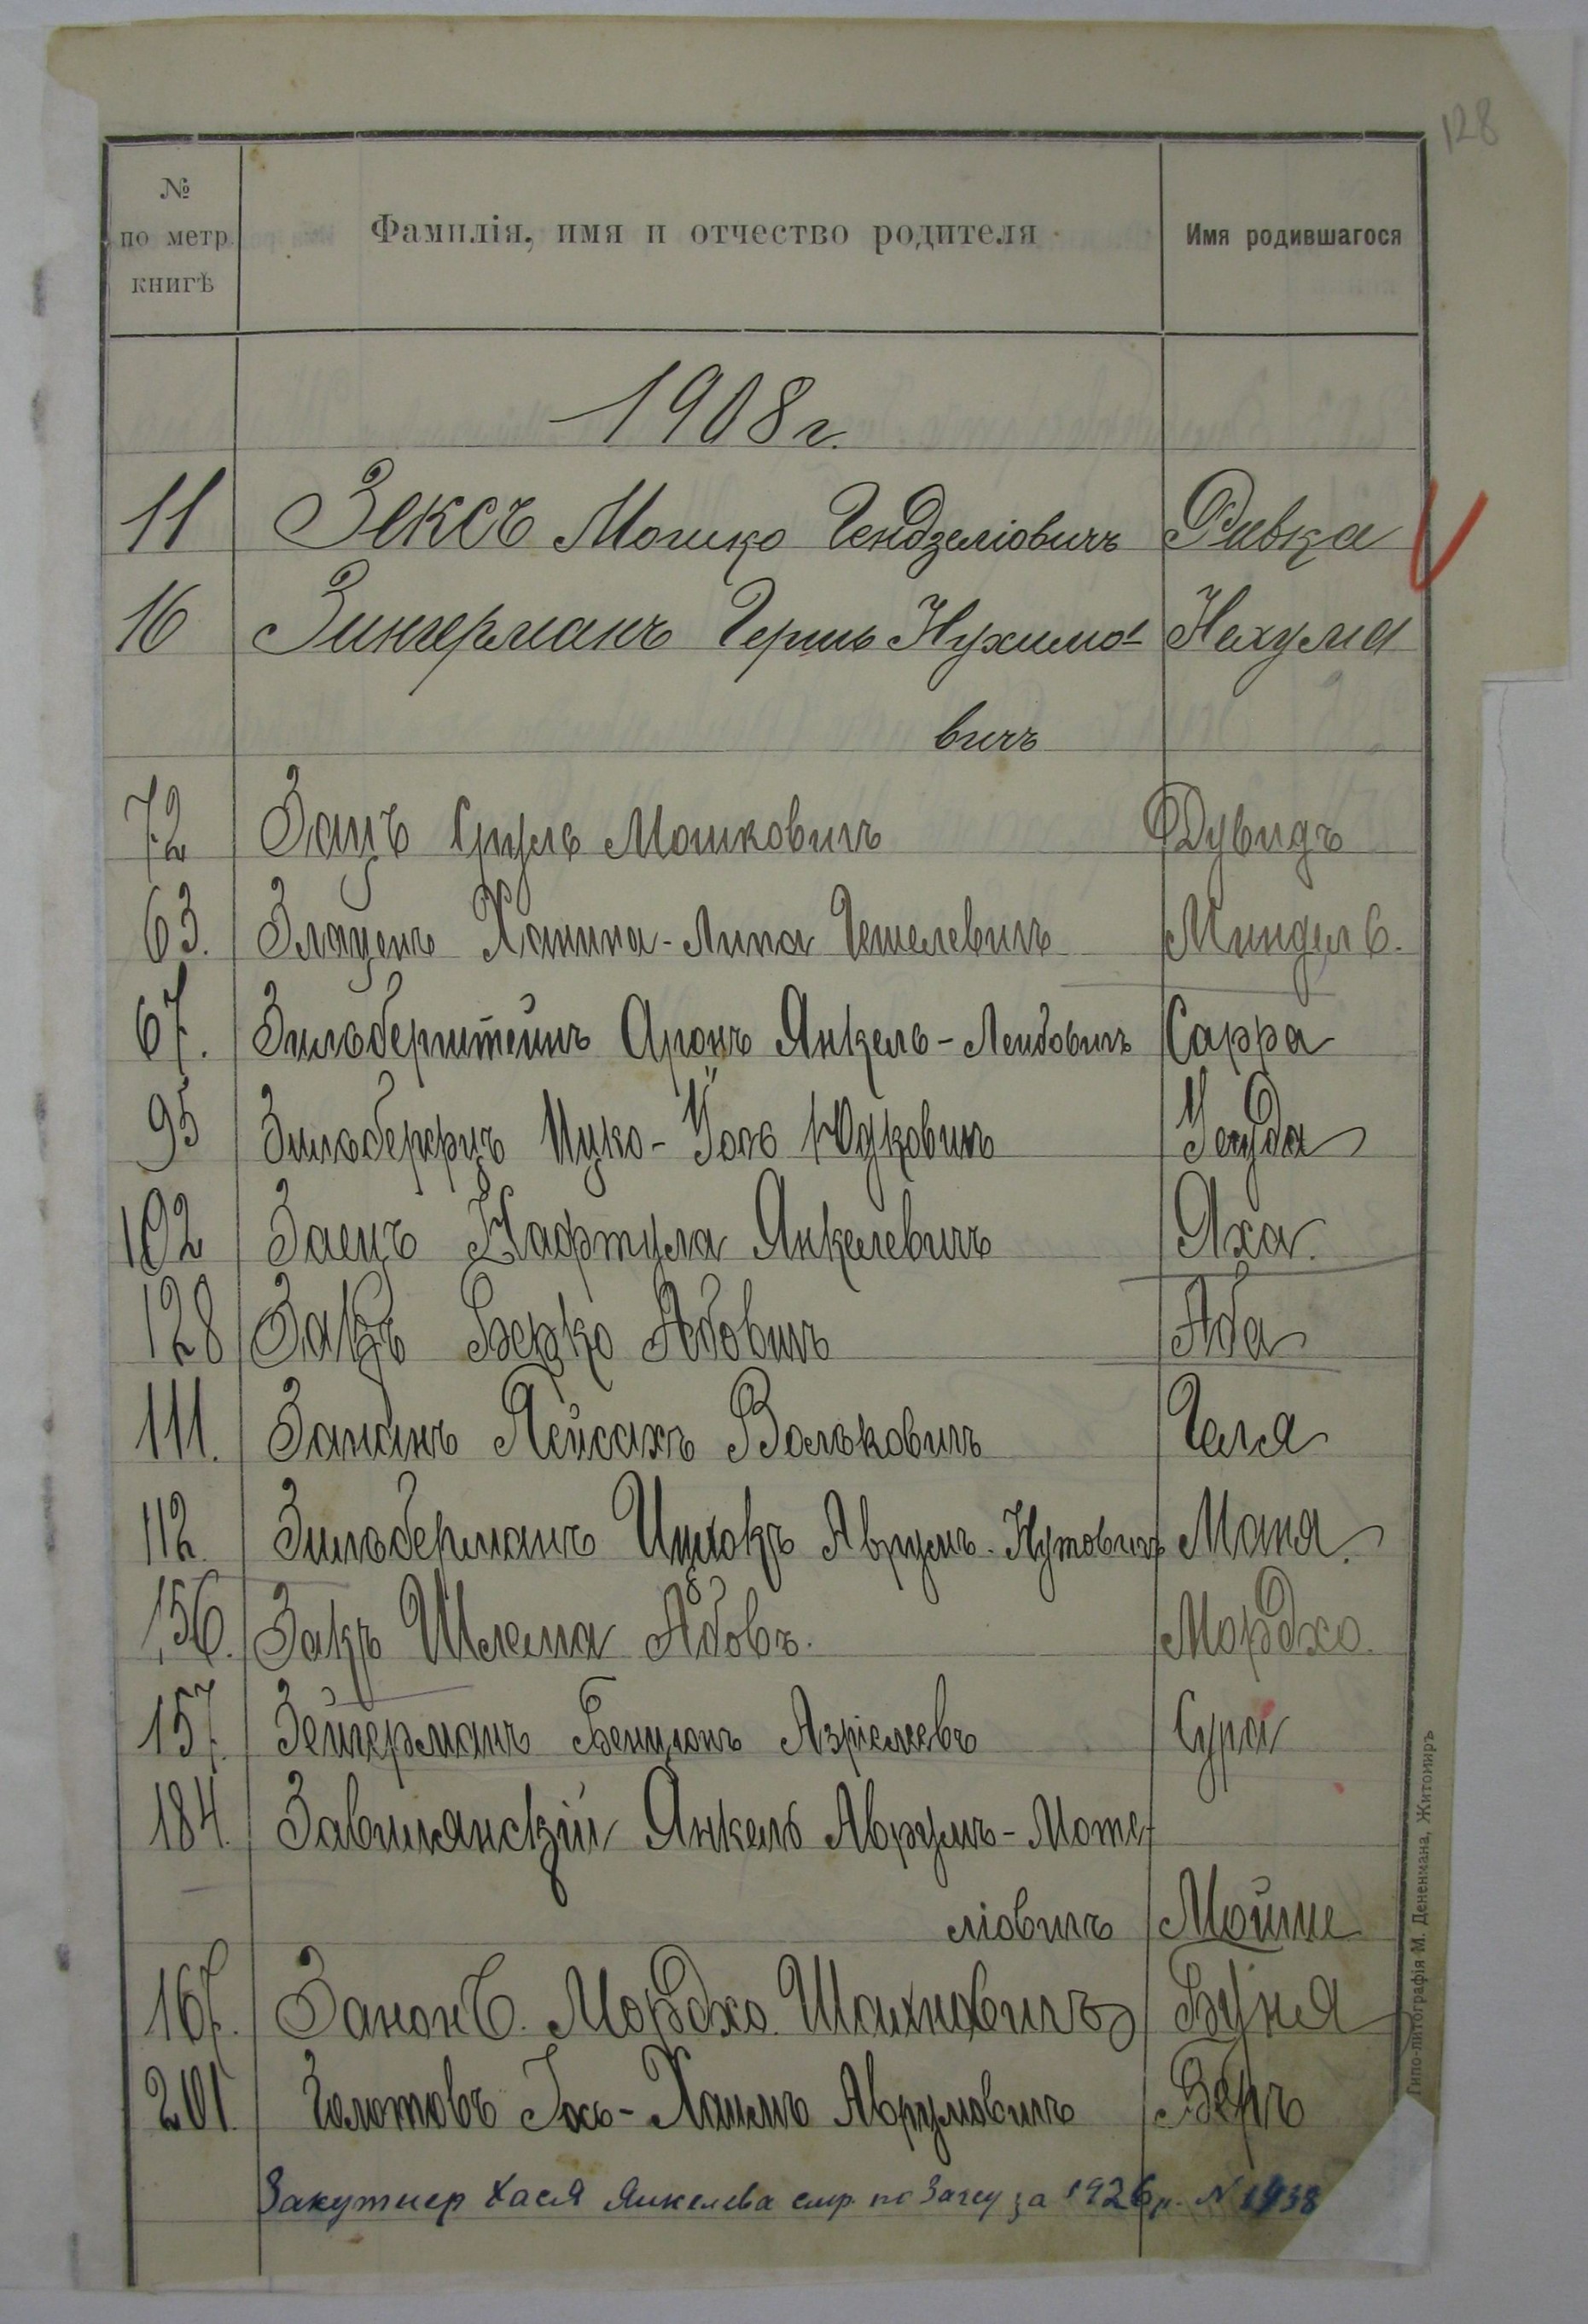 128
№ по метр. книгѣ
Фамилія, имя и отчество родителя
Имя родившагося
1908 г.
11 Зексъ Мошко Гендзеліовичъ Ривка
16 Зингерманъ Гершъ Нухимо- Нехума
вичъ
72 Зацъ Сруль Мошковичъ Дувидъ
63. Злацень Ханина-Липа Гешелевичъ Миндель.
67. Зильберштейнъ Аронъ Янкель-Лейбовичъ Сарра
95 Зильберфрцъ Ицко- Юдковичъ Іегуда
102 Заецъ Нафтула Янкелевичъ Яха.
128 Закъ Берко Абовичъ Аба
111. Занданъ Пейсахъ Вольковичъ Геля
112. Зильберманъ Ицхокъ Аврумъ-Нутовичъ Маня.
156. Закъ Шлема Абовъ. Мордхо.
157. Зейгерманъ Бенционъ Азріелевъ Сура
184. Завилянскій Янкель Аврумъ-Моте-
ліовичъ Мойше
167. Занонъ. Мордхо Шахновичъ Буня
201. Золотовъ Іось-Хаимъ Аврумовичъ Беръ
Закутнер Хася Янкелева смр. по Загсу за 1926 р. N 1938
Типо-литографія М. Дененмана, Житомиръ